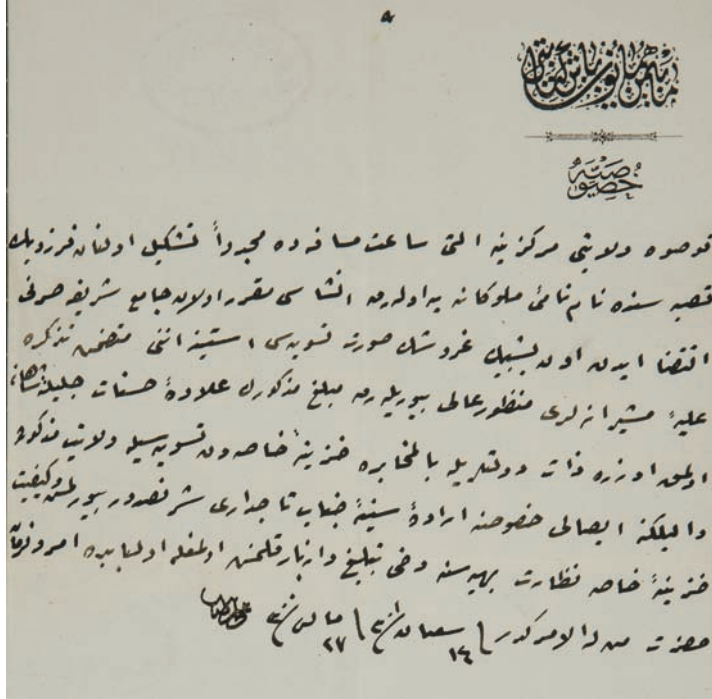 مابين همايون باش كتابتى
خصوصيه
قوصوه ولايتى مركزينه التى ساعت مسافه ده مجدداً تشكيل اولنان فرزويك
قصبه سنده نام نامئ ملوكانه يه اوله رق انشاسى مقرر اولان جامع شريفه صرفى
اقتضا ايدن اون بشبيك غروشك صورت تسويه سى استيذاننى متضمن تذكرهٔ
عليهٔ مشيرانه لرى منظور عالى بيوريله رق مبلغ مذكورك علاوهٔ حسنات جليلهٔ شاهانه
اولمق اوزره ذات دولتلريله بالمخابره خزينهٔ خاصه دن تسويه سيله ولايت مذكوره
واليلكنه ايصالى خصوصنه ارادهٔ سنيهٔ جناب تاجدارى شرفصدور بيورلمش وكيفيت
خزينهٔ خاصه نظارت بهيه سنه دخى تبليغ وازبار قلنمش اولمغله اولبابده امر وفرمان
حضرت من له الامركدر ١٤ شعبان ٣٠١ ٢٧ مايس ٣٠٠